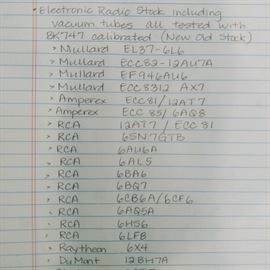 • Electronic Radio Stock including
vacuum tubes all tested with
BK747 calibrated (New Old Stock)
> Mullard EL37-6L6
> Mullard ECC82-12AU7A
> Mullard EF946AU6
> Mullard ECC8312 AX7
> Amperex ECC81/12AT7
> Amperex ECC 85/6AQ8
> RCA 12AT7 / ECC 81
> RCA 6SN7GTB
> RCA 6AU6A
> RCA 6AL5
> RCA 6BA6
> RCA 6BQ7
> RCA 6CB6A/6CF6
> RCA 6AQ5A
> RCA 6HS6
> RCA 6LF8
> Raytheon 6X4
> DuMont 12BH7A